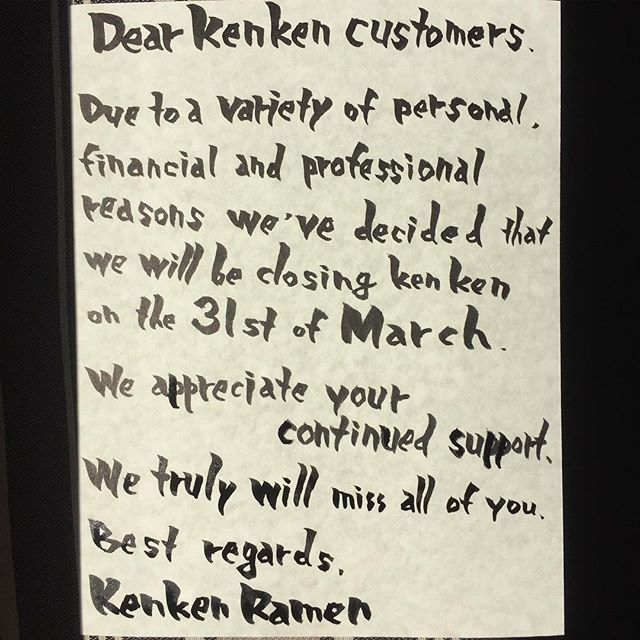 Dear Kenken customers.
Due to a variety of personal,
financial and professional
reasons we've decided that
we will be closing kenken
on the 31st of March.
We appreciate your
continued support.
We truly will miss all of you.
Best regards,
Kenken Ramen